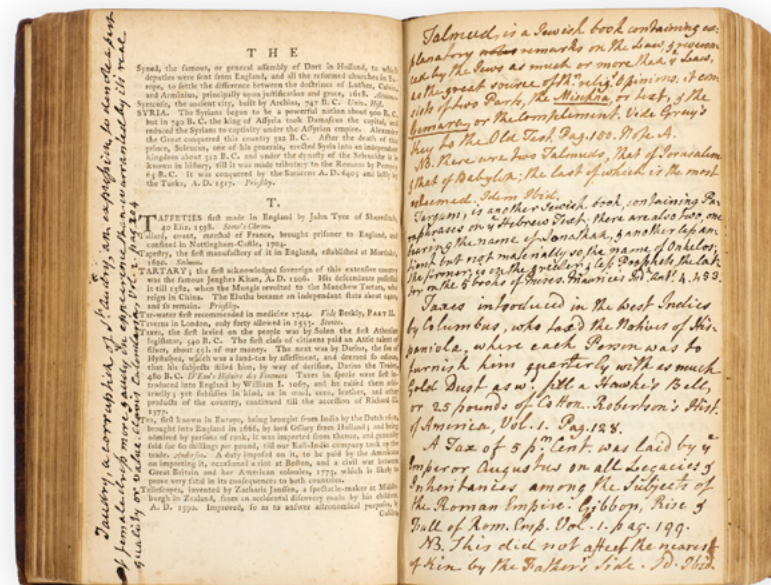 Tawdry, a corruption of St. Audry, an expression, to denote a sort
of female dress more gaudy in appearance than warranted by its real
quality or value. Vol. 2. pag. 204
THE
Synod, the famous, or general assembly of Dort in Holland, to which
deputies were sent from England, and all the reformed churches in Eu-
rope, to settle the difference between the doctrines of Luther, Calvin,
and Arminius, principally upon justification and grace, 1618.
Syracuse, the ancient city, built by Archias, 747 B. C. Univ. Hist.
SYRIA. The Syrians began to be a powerful nation about 900 B. C.
but in 740 B. C. the king of Assyria took Damascus the capital, and
reduced the Syrians to captivity under the Assyrian empire. Alexander
the Great conquered this country 332 B. C. After the death of this
prince, Seleucus, one of his generals, erected Syria into an independent
kingdom about 312 B. C. and under the dynasty of the Seleucidæ is
known in history, till it was made tributary to the Romans by Pompey
65 B. C. It was conquered by the Saracens A. D. 640; and lastly by
the Turks, A. D. 1517. Priestley.
T.
TAFFETIES first made in England by John Tyce of Shoreditch,
40 Eliz. 1598. Stowe's Chron.
Tallard, count, marshal of France, brought prisoner to England, and
confined in Nottingham-Castle, 1704.
Tapestry, the first manufactory of it in England, established at Mortlake,
1620. Salmon.
TARTARY; the first acknowledged sovereign of this extensive country
was the famous Jenghez Khan, A. D. 1206. His descendants possessed
it till 1582, when the Mongls revolted to the Manchew Tartars, who
reign in China. The Eluths became an independent state about 1400,
and so remain. Priestley.
Tar-water first recommended in medicine 1744. Vide Berkly, PART II.
Taverns in London, only forty allowed in 1553. Stowe.
Taxes, the first levied on the people was by Solon the first Athenian
legislator, 540 B. C. The first class of citizens paid an Attic talent of
silver, about 55l. of our money. The next was by Darius, the son of
Hystaspes, which was a land-tax by assessment, and deemed so odious,
that his subjects stiled him, by way of derision, Darius the Trader,
480 B. C. D'Eon's Histoire des Finances Taxes in specie were first in-
troduced into England by William I. 1067, and he raised them arbi-
trarily; yet subsidies in kind, as in wool, corn, leather, and other
products of the country, continued till the accession of Richard II.
1377.
Tea, first known in Europe, being brought from India by the Dutch 1610,
brought into England in 1666, by lord Ossory from Holland; and being
admired by persons of rank, it was imported from thence, and generally
sold for 60 shillings per pound, till our East-India company took up the
trade. Anderson. A duty imposed on it, to be paid by the Americans
on importing it, occasioned a riot at Boston, and a civil war between
Great Britain and her American colonies, 1773, which is likely to
prove very fatal in its consequences to both countries.
Telescopes, invented by Zacharia Janssen, a spectacle-maker at Middle-
burgh in Zealand, from an accidental discovery made by his children,
A. D. 1590. Improved, so as to answer astronomical purposes, by
Talmud, is a Jewish book containing ex-
planatory remarks on the Laws, & reveren-
ced by the Jews as much or more than ye Laws.
as the great source of thr. relig. Opinions. it con
sists of two Parts, the Mischna, or text, & the
Gemara, or the complement. Vide Grey's
Key to the Old Test. Pag. 100. Note A.
NB. there are two Talmuds, that of Jerusalem
& that of Babylon; the last of which is the most
esteemed. Idem Ibid.
Targum, is another Jewish book, containing Pa-
raphrases on ye Hebrew Text. there are also two, one
bearing the name of Jonathan, & another less an-
tient but not materially so, the name of Onkelos,
the former, is on the greater, & less Prophets, the lat
ter on the 5 books of Moses. Maurice's Ind. ant. 4. 453.
Taxes introduced in the West Indies
by Columbus, who tax'd the Natives of His-
paniola, where each Person was to
furnish him quarterly with as much
Gold Dust as w. fill a Hawke's Bell,
or 25 pounds of Cotton. Robertson's Hist.
of America, Vol. 1. Pag. 128.
A Tax of 5 pr. Cent. was laid by ye
Emperor Augustus on all Legacies &
Inheritances among the Subjects of
the Roman Empire. Gibbon, Rise &
Fall of Rom. Emp. Vol. 1. pag. 199.
NB. This did not affect the nearest
of Kin by the Father's Side. Id. Ibid.